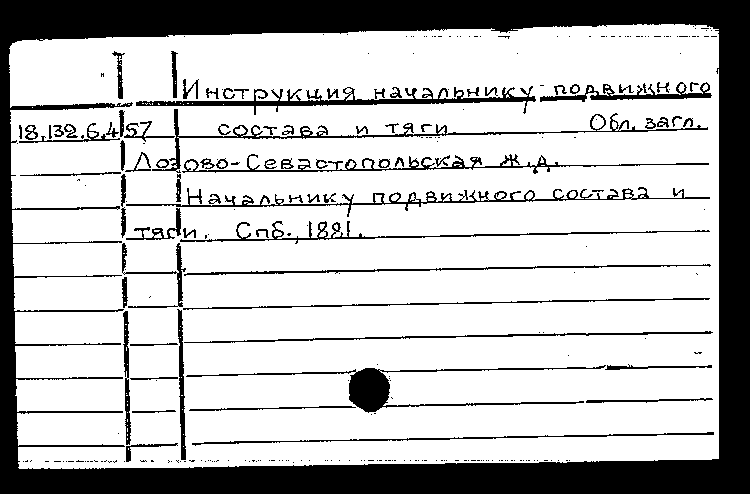 Инструкция начальнику подвижного
18.132.6.457 состава и тяги Обл. загл.
Лозово-Севастопольская ж.д.
Начальнику подвижного состава и
тяги. Спб., 1881.